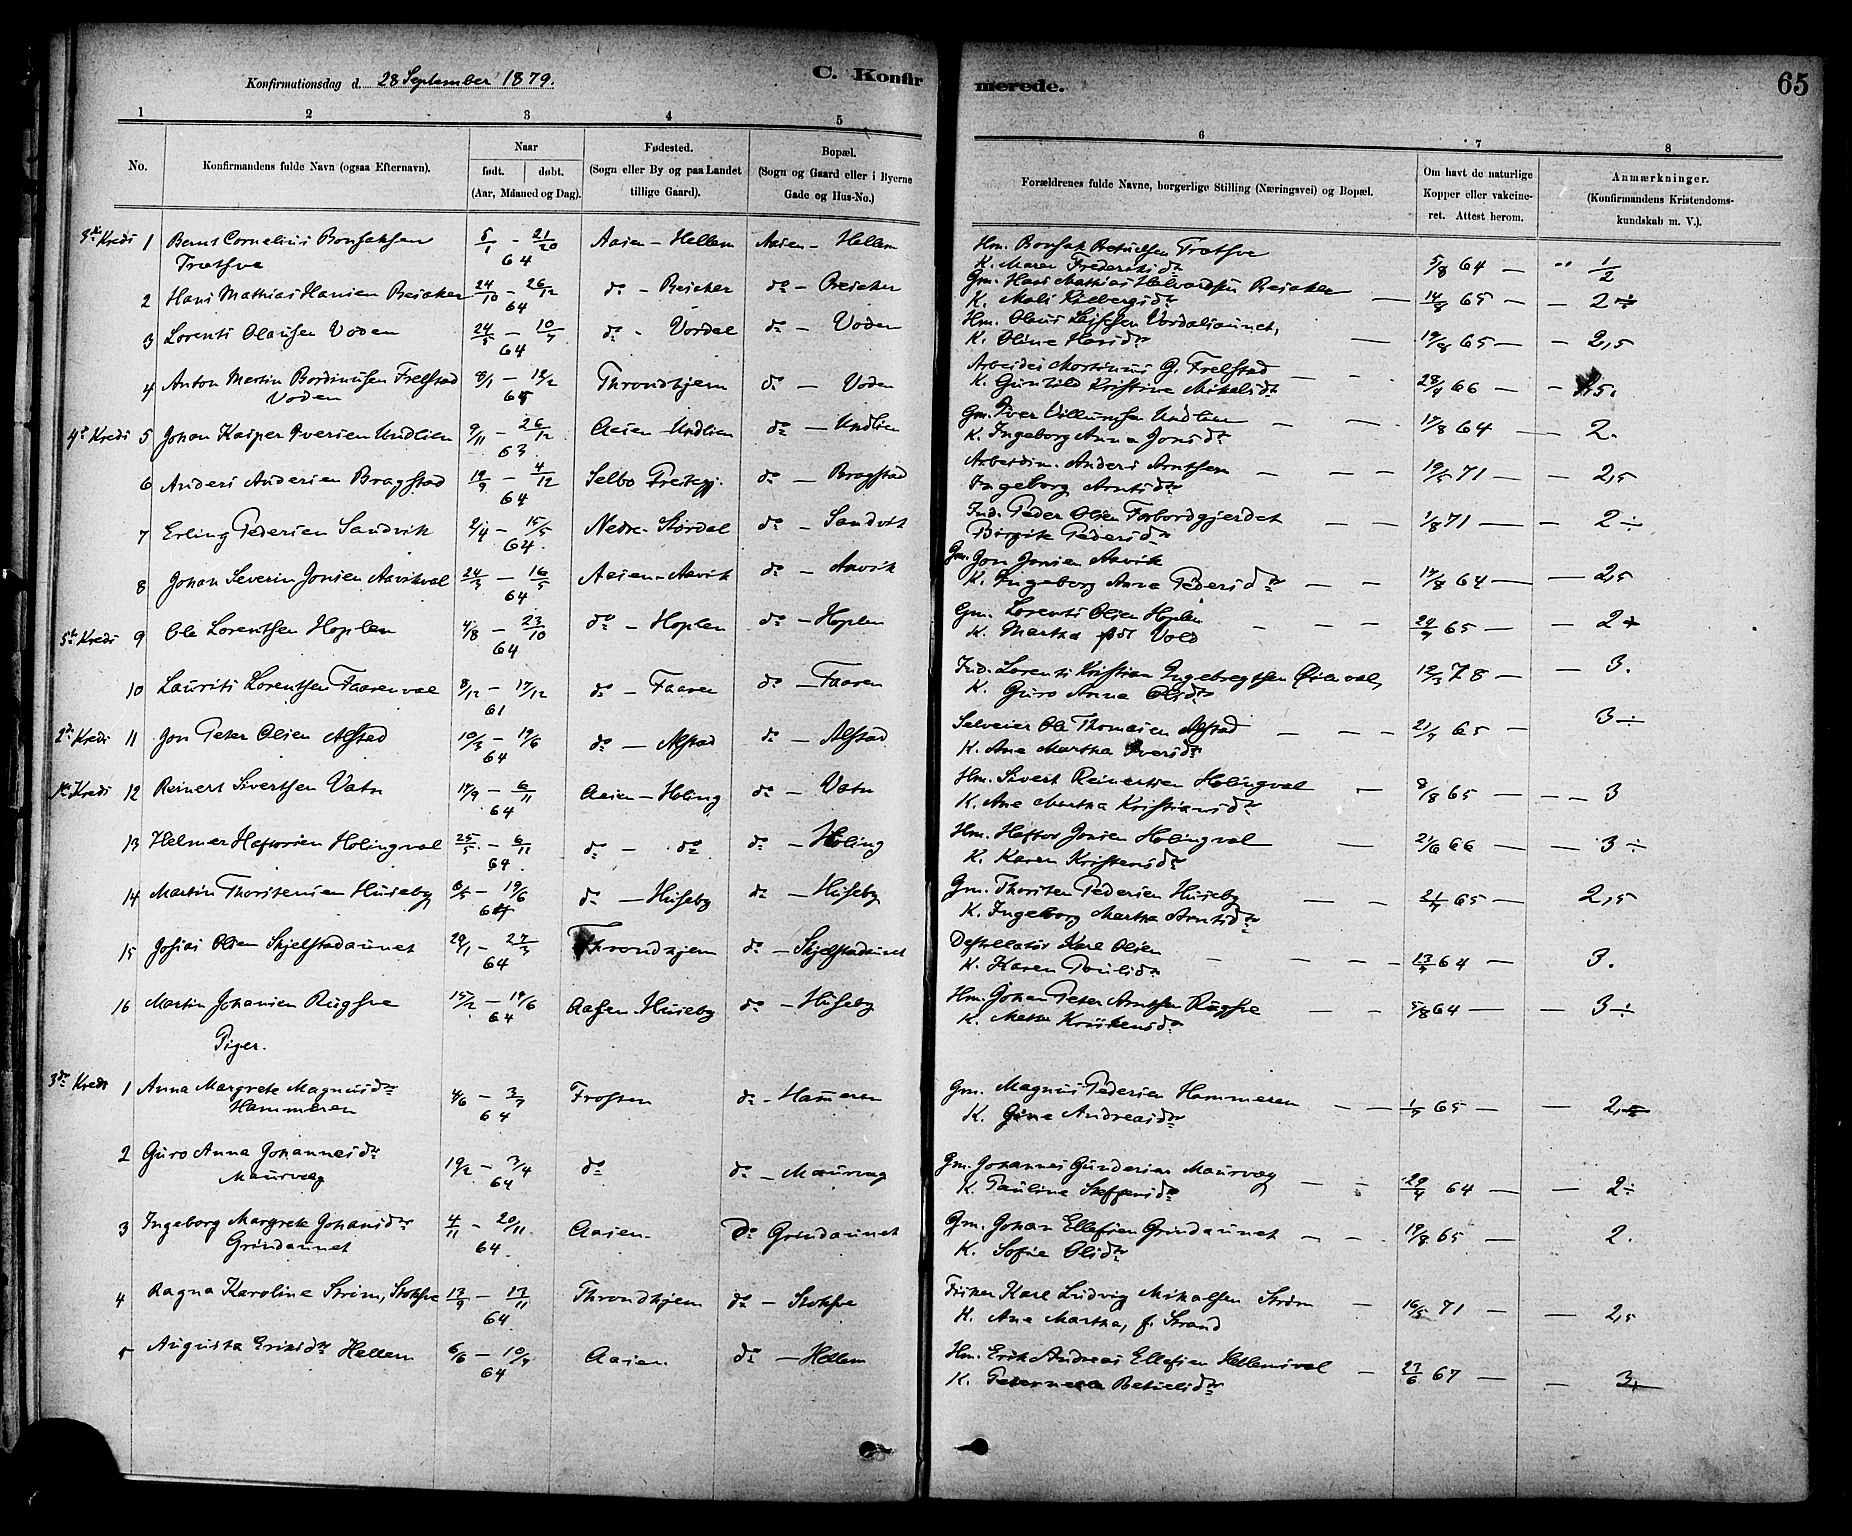 Konfirmationsdag d. 28 September 1879.
C. Konfir
merede.
65
1 2 3 4 5 6 7 8
No.
Konfirmandens fulde Navn (ogsaa Efternavn).
Naar
født. døbt.
(Aar, Maaned og Dag).
Fødested.
(Sogn eller By og paa Landet
tillige Gaard).
Bopæl.
(Sogn og Gaard eller i Byerne
Gade og Hus-No.)
Forældrenes fulde Navne, borgerlige Stilling (Næringsvei) og Bopæl.
Om havt de naturlige
Kopper eller vakcine-
ret. Attest herom.
Anmærkninger.
(Konfirmandens Kristendoms-
kundskab m. V.)
3die Kreds 1 Bernt Cornelius Bonsaksen 5/1 - 21/20 64 Aasen - Hellem Aasen - Hellem Hm. Bonsak Betuelsen Trætsve 5/8 64 — " 1/2
Trætsve K. Maren Frederiksdr
2 Hans Mathias Hansen Reisaker 24/10 - 26/12 64 do - Reisaker do - Reisaker Gm. Hans Mathias Halvardsen Reisaker — 14/8 65 — - 2÷
K. Mali Kilebergsdr
3 Lorents Olausen Voden 24/5 - 10/7 64 do - Vordal do - Voden Hm. Olaus Laissen Vordalsaunet, 19/8 65 — - 2,5
K. Oline Hansdr
4 Anton Martin Bordinusen Frelstad 8/1 - 12/2 65 Throndhjem do - Voden Arbeider Mortinus G. Frelstad 28/4 66 — - 2,5.
Voden K. Gunhild Kristine Mikalsdr
4de Kreds 5 Johan Kasper Iversen Undlien 9/11 - 26/12 63. Aasen - Undlien do - Undlien Gm. Iver Villumsen Undlien 17/8 64 — 2.
K. Ingeborg Anna Jonsdr
6 Anders Andersen Bragstad 19/9 - 4/12 64 Selbo Freitagj. do - Bragstad Arbeidsm. Anders Arntsen 19/5 71 — - 2,5
Ingeborg Arntsdr
7 Erling Pedersen Sandvik 2/4 - 15/5 64. Nedre - Størdal do - Sandvik Ind. Peder Olsen Forbordgjerdet 1/8 71 — - 2÷
Birgite Pedersdr
8 Johan Severin Jonsen Aavikval 24/3 - 16/5 64 Aasen - Aavik do - Aavik Gm. Jon Jonsen Aavik 17/8 64 — 2,5
K. Ingeborg Anna Pedersdr
5te Kreds 9 Ole Lorentsen Hoplen 4/8 - 23/10 64 do - Hoplen do - Hoplen Gm. Lorents Olsen Hoplen 24/9 65 — 2+
K. Martha født Vold
10 Laurits Lorentsen Faarenval 8/12 - 17/12 61 do - Faaren do - Faaren Ind. Lorents Kristian Ingebregtsen Øienval, 12/3 78 — 3.
K. Guro Anna Olsdr
2den Kreds 11 Jon Peter Olsen Alstad 10/3 - 19/6 64 do - Alstad do - Alstad Selveier Ole Thomasen Alstad 21/7 65 — 3÷
K. Ane Martha Iversdr
1ste Kreds 12 Reinert Sivertsen Vatn 17/9 - 6/11 64 Aasen - Holing do - Vatn Hm. Sivert Reinertsen Holingval 8/8 65 — 3
K. Ane Martha Kristiansdr
13 Helmer Haftorsen Holingval 25/5. - 6/11 64. do - do do - Holing Hm. Haftor Jonsen Holingval 21/6 66 — 3÷
K. Karen Kristensdr
14 Martin Thorstensen Huseby 6/5 - 19/6 64 do - Huseby do - Huseby Gm. Thorsten Pedersen Huseby 21/7 65 — 2,5
K. Ingeborg Martha Arntsdr
15 Josias Olsen Skjelstadaunet 29/1 - 27/3 64 Throndhjem do - Skjelstadaunet Destillatør Karl Olsen 13/7 64 — 3.
K. Karen Poulsdr
16 Martin Johansen Rugsve 15/2 - 19/6 64 Aasen - Huseby do - Huseby Hm. Johan Peter Arntsen Rugsve 5/8 64 — 3÷
K. Metta
Piger.
3die Kreds 1 Anna Margrete Magnusdr 4/6 - 3/7 64 Frosten do - Hammeren Gm. Magnus Pedersen Hammeren 1/7 65 — 2,÷
Hammeren K. Gine Andreasdr
2 Guro Anna Johannesdr 19/2 - 3/4 64 do do - Maurvæg Gm. Johannes Gundersen Maurvæg 29/4 64 — 2÷
Maurvæg K. Pauline Steffensdr
3 Ingeborg Margrete Johansdr 4/11 - 20/11. 64. Aasen. do Grindaunet Gm. Johan Ellefsen Grindaunet 19/8 65 — 2.
Grindaunet K. Sofie Olsdr
4 Ragna Karoline Strøm, Stoksve 13/9 - 13/11 64 Throndhjem do - Stoksve Fisker Karl Ludvig Mikalsen Strøm 16/5 71 — 2,5
K. Ane Martha, f. Strand
5 Augusta Eriksdr Hellem 6/6 - 10/7 64 Aasen. do - Hellem Hm. Erik Andreas Ellefsen Hellemsval 23/6 67 — 3+
K. Peternella Betuelsdr